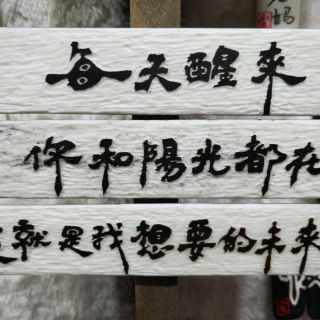 每天醒來
你和陽光都在
這就是我想要的未來
媽